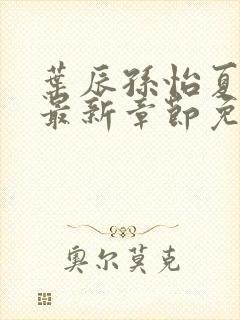 葉辰孫怡夏
最新章節免
奧尔莫克